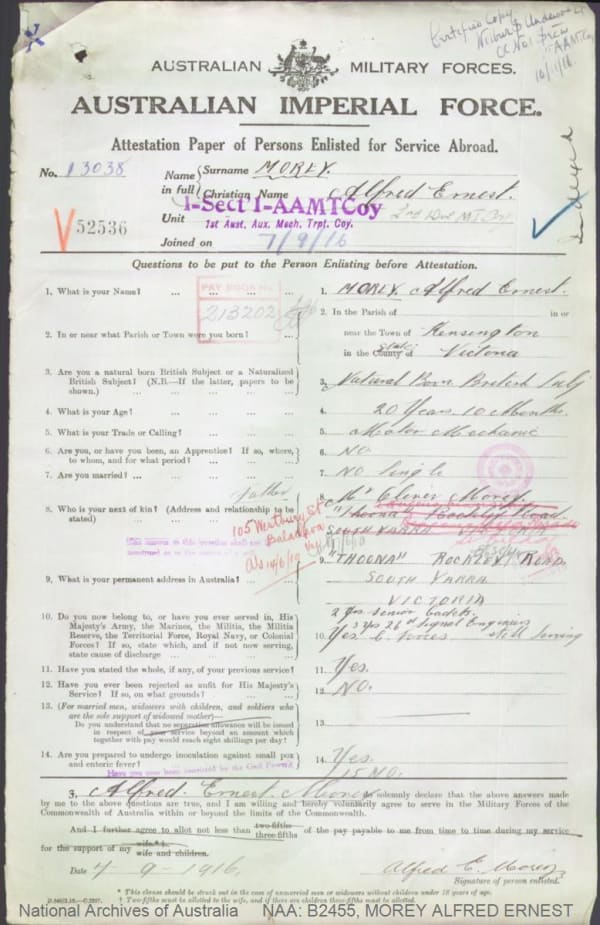 Certified Copy
AUSTRALIAN MILITARY FORCES.
AUSTRALIAN IMPERIAL FORCE.
Attestation Paper of Persons Enlisted for Service Abroad.
No. 13038
Name in full { Surname MOREY.
Christian Name Alfred Ernest.
1-Sect 1-AAMTCoy
Unit 1st Aust. Aux. Mech. Trpt. Coy.
52536
Joined on 7/9/16
Indexed
Questions to be put to the Person Enlisting before Attestation.
PAY BOOK No.
213202
1. What is your Name? ... ... ... ... 1. MOREY Alfred Ernest.
2. In or near what Parish or Town were you born? ... 2. In the Parish of in or
near the Town of Kensington
in the County of State Victoria
3. Are you a natural born British Subject or a Naturalized British Subject? (N.B.—If the latter, papers to be shown.) ... 3. Natural Born British Subj
4. What is your Age? ... ... ... 4. 20 Years 10 Months.
5. What is your Trade or Calling? ... ... 5. Motor Mechanic
6. Are you, or have you been, an Apprentice? If so, where, to whom, and for what period? ... 6. NO.
7. Are you married? ... ... ... 7. NO Single
father
8. Who is your next of kin? (Address and relationship to be stated) 8. Mr Morey.
"Thoona" Rockley Road
SOUTH YARRA VICTORIA
105 Westbury St
Balaclava
Vic
9. What is your permanent address in Australia? ... 9. "THOONA" ROCKLEY ROAD
SOUTH YARRA
VICTORIA
10. Do you now belong to, or have you ever served in, His Majesty's Army, the Marines, the Militia, the Militia Reserve, the Territorial Force, Royal Navy, or Colonial Forces? If so, state which, and if not now serving, state cause of discharge ... 10. 2 yrs senior cadets.
3 yrs 26th Signal Engineers
Yes C. Forces still serving
11. Have you stated the whole, if any, of your previous service? 11. Yes.
12. Have you ever been rejected as unfit for His Majesty's Service? If so, on what grounds? ... 12. NO.
13. (For married men, widowers with children, and soldiers who are the sole support of widowed mother)—
Do you understand that no separation allowance will be issued in respect of your service beyond an amount which together with pay would reach eight shillings per day? 13.
14. Are you prepared to undergo inoculation against small pox and enteric fever? ... 14. Yes.
Have you ever been convicted by the Civil Power? 15 NO.
I, Alfred Ernest Morey do solemnly declare that the above answers made
by me to the above questions are true, and I am willing and hereby voluntarily agree to serve in the Military Forces of the
Commonwealth of Australia within or beyond the limits of the Commonwealth.
And I further agree to allot not less than two-fifths three-fifths of the pay payable to me from time to time during my service
for the support of my wife.* wife and children.
Date 7-9-1916. Alfred E. Morey
Signature of person enlisted.
* This clause should be struck out in the case of unmarried men or widowers without children under 18 years of age.
† Two-fifths must be allotted to the wife, and if there are children three-fifths must be allotted.
National Archives of Australia NAA: B2455, MOREY ALFRED ERNEST